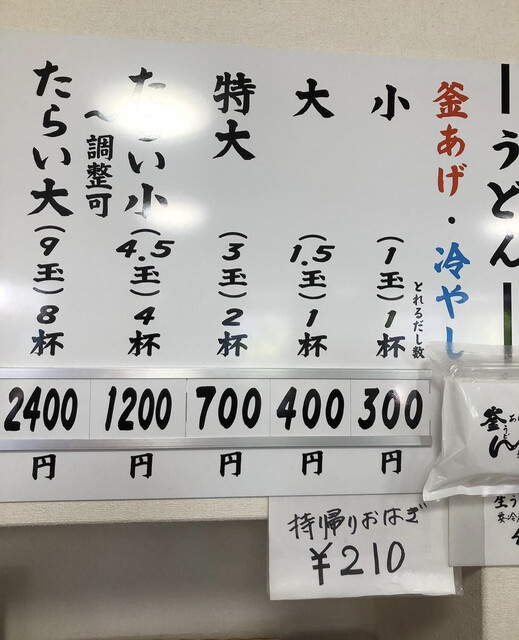 うどん
釜あげ・冷やし
とれるだし数
小(1玉)1杯
300円
大(1.5玉)1杯
400円
特大(3玉)2杯
700円
たらい小(4.5玉)4杯
1200円
~調整可
たらい大(9玉)8杯
2400円
持帰りおはぎ
¥210
釜
うどん
生う